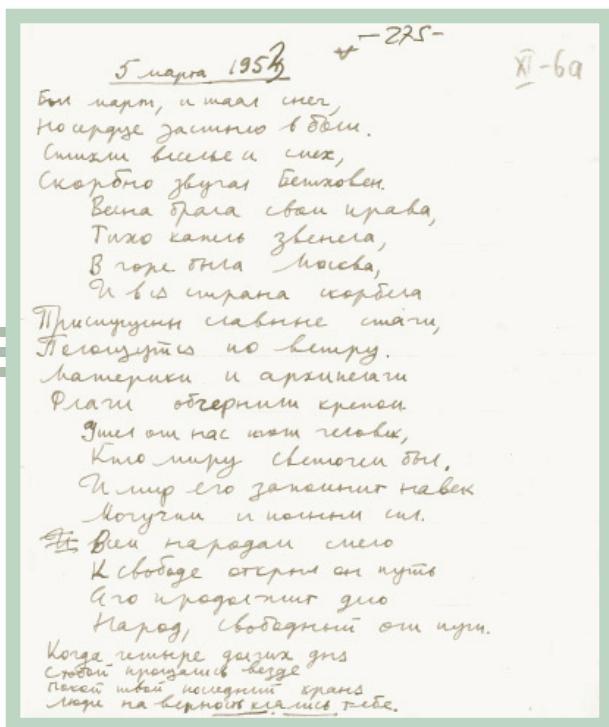 -275-
5 марта 1953
XI-6а
Был март, и таял снег,
Но сердце застыло в боли.
Стихли веселье и смех,
Скорбно звучал Бетховен.
Весна брала свои права,
Тихо капель звенела,
В горе была Москва,
И вся страна скорбела
Приспущены славные стяги,
Полощутся по ветру.
Материки и архипелаги
Флаги обчернили крепом
Ушел от нас тот человек,
Кто миру светочем был.
И мир его запомнит навек
Могучим и полным сил.
Всем народам смело
К свободе открыл он путь
Его продолжит дело
Народ, свободный от пут.
Когда четыре долгих дня
с тобой прощались везде
покой твой последний храня
люди на верность клялись тебе.